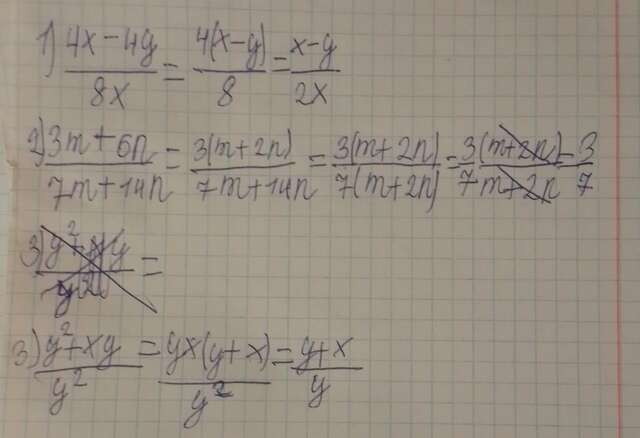 1) (4x - 4y)/(8x) = (4(x-y))/8 = (x-y)/(2x)
2) (3m + 6n)/(7m + 14n) = (3(m+2n))/(7m+14n) = (3(m+2n))/(7(m+2n)) = (3(m+2n))/(7m+2n) = 3/7
3) =
3) (y²+xy)/(y²) = (yx(y+x))/(y²) = (y+x)/y